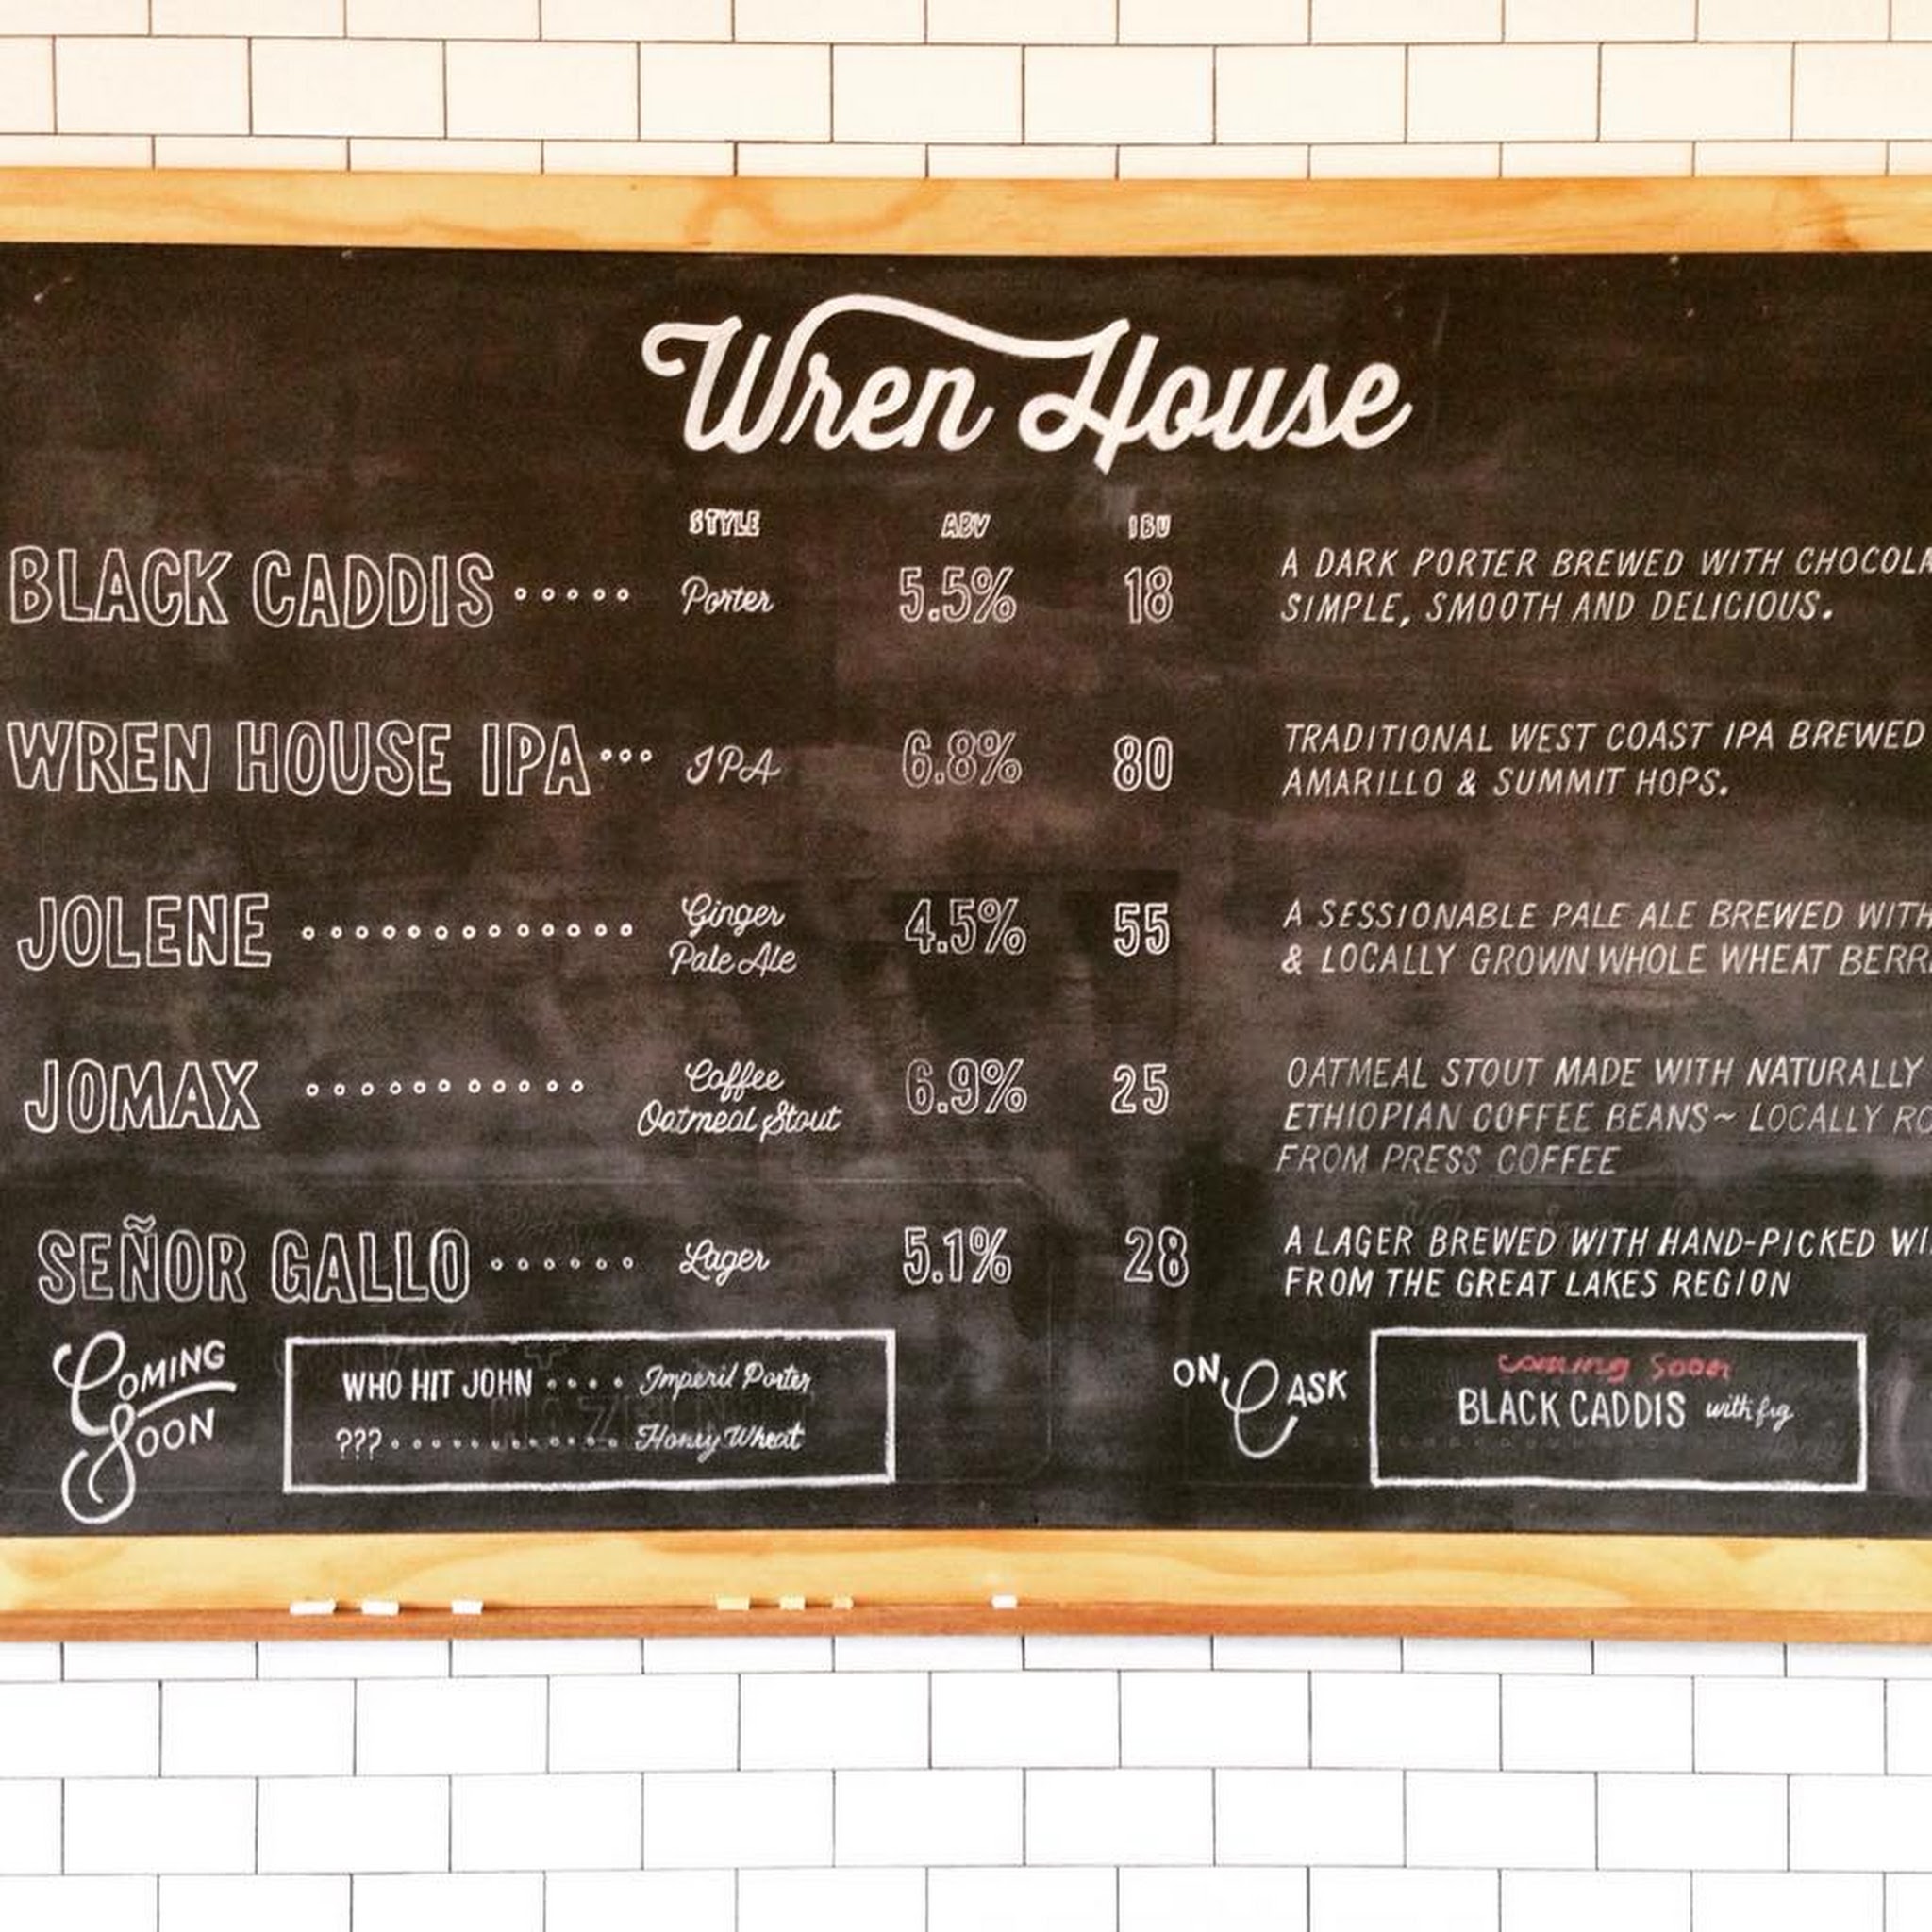 Wren House
STYLE ABV IBU
BLACK CADDIS ..... Porter 5.5% 18
A DARK PORTER BREWED WITH
SIMPLE, SMOOTH AND DELICIOUS.
WREN HOUSE IPA ... IPA 6.8% 80
TRADITIONAL WEST COAST IPA BREWED
AMARILLO & SUMMIT HOPS.
JOLENE ............. Ginger
Pale Ale 4.5% 55
A SESSIONABLE PALE ALE BREWED WITH
& LOCALLY GROWN WHOLE WHEAT
JOMAX ........... Coffee
Oatmeal Stout 6.9% 25
OATMEAL STOUT MADE WITH NATURALLY
ETHIOPIAN COFFEE BEANS~ LOCALLY
FROM PRESS COFFEE
SEÑOR GALLO ...... Lager 5.1% 28
A LAGER BREWED WITH HAND-PICKED
FROM THE GREAT LAKES REGION
COMING
SOON
WHO HIT JOHN .... Imperil Porter
??? ............. Honey Wheat
ON CASK
coming soon
BLACK CADDIS with fig